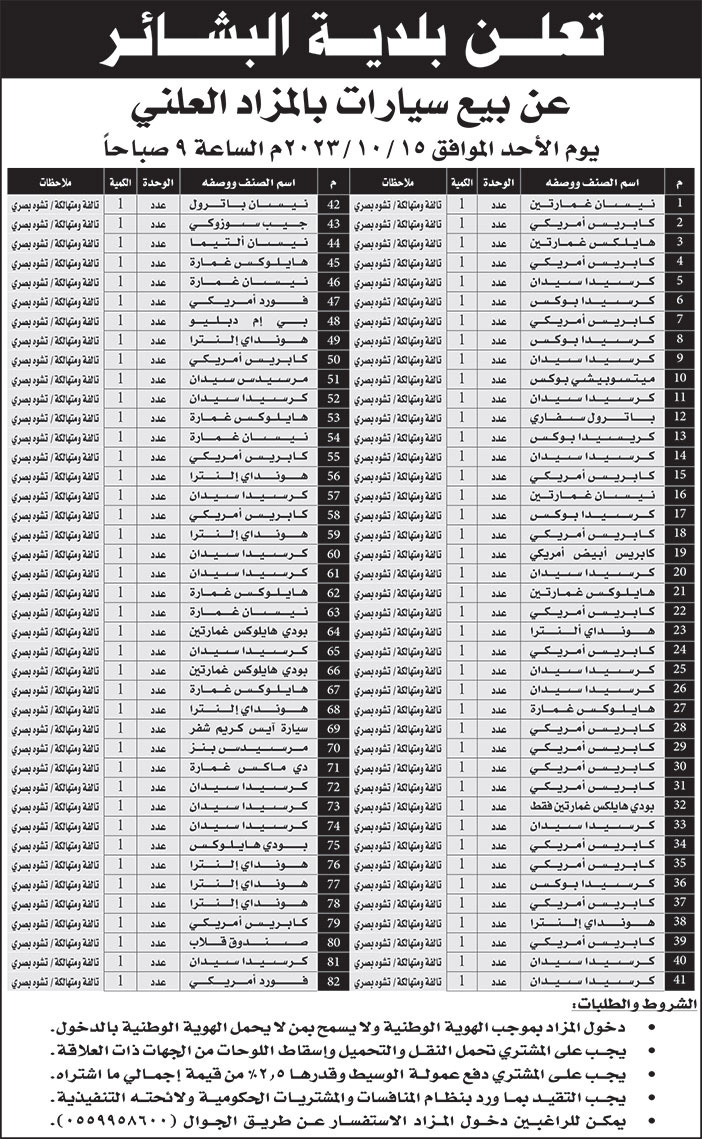 تعلن بلدية البشائر
عن بيع سيارات بالمزاد العلني
يوم الأحد الموافق ٢٠٢٣/١٠/١٥م الساعة ٩ صباحاً
م اسم الصنف ووصفه الوحدة الكمية ملاحظات
1 نيسان غمارتين عدد 1 تالفة ومتهالكة / تشوه بصري
2 كابريس أمريكي عدد 1 تالفة ومتهالكة / تشوه بصري
3 هايلكس غمارتين عدد 1 تالفة ومتهالكة / تشوه بصري
4 كابريس أمريكي عدد 1 تالفة ومتهالكة / تشوه بصري
5 كرسيدا سيدان عدد 1 تالفة ومتهالكة / تشوه بصري
6 كرسيدا بوكس عدد 1 تالفة ومتهالكة / تشوه بصري
7 كابريس أمريكي عدد 1 تالفة ومتهالكة / تشوه بصري
8 كرسيدا بوكس عدد 1 تالفة ومتهالكة / تشوه بصري
9 كرسيدا سيدان عدد 1 تالفة ومتهالكة / تشوه بصري
10 ميتسوبيشي بوكس عدد 1 تالفة ومتهالكة / تشوه بصري
11 كرسيدا سيدان عدد 1 تالفة ومتهالكة / تشوه بصري
12 باترول سفاري عدد 1 تالفة ومتهالكة / تشوه بصري
13 كريسيدا بوكس عدد 1 تالفة ومتهالكة / تشوه بصري
14 كرسيدا سيدان عدد 1 تالفة ومتهالكة / تشوه بصري
15 كابريس أمريكي عدد 1 تالفة ومتهالكة / تشوه بصري
16 نيسان غمارتين عدد 1 تالفة ومتهالكة / تشوه بصري
17 كرسيدا بوكس عدد 1 تالفة ومتهالكة / تشوه بصري
18 كابريس أمريكي عدد 1 تالفة ومتهالكة / تشوه بصري
19 كابريس أبيض أمريكي عدد 1 تالفة ومتهالكة / تشوه بصري
20 كرسيدا سيدان عدد 1 تالفة ومتهالكة / تشوه بصري
21 هايلوكس غمارتين عدد 1 تالفة ومتهالكة / تشوه بصري
22 كابريس أمريكي عدد 1 تالفة ومتهالكة / تشوه بصري
23 هونداي ألنترا عدد 1 تالفة ومتهالكة / تشوه بصري
24 كابريس أمريكي عدد 1 تالفة ومتهالكة / تشوه بصري
25 كرسيدا سيدان عدد 1 تالفة ومتهالكة / تشوه بصري
26 كرسيدا سيدان عدد 1 تالفة ومتهالكة / تشوه بصري
27 هايلوكس غمارة عدد 1 تالفة ومتهالكة / تشوه بصري
28 كابريس أمريكي عدد 1 تالفة ومتهالكة / تشوه بصري
29 كابريس أمريكي عدد 1 تالفة ومتهالكة / تشوه بصري
30 كابريس أمريكي عدد 1 تالفة ومتهالكة / تشوه بصري
31 كابريس أمريكي عدد 1 تالفة ومتهالكة / تشوه بصري
32 بودي هايلكس غمارتين فقط عدد 1 تالفة ومتهالكة / تشوه بصري
33 كرسيدا سيدان عدد 1 تالفة ومتهالكة / تشوه بصري
34 كابريس أمريكي عدد 1 تالفة ومتهالكة / تشوه بصري
35 كابريس أمريكي عدد 1 تالفة ومتهالكة / تشوه بصري
36 كرسيدا بوكس عدد 1 تالفة ومتهالكة / تشوه بصري
37 كابريس أمريكي عدد 1 تالفة ومتهالكة / تشوه بصري
38 هونداي إلنترا عدد 1 تالفة ومتهالكة / تشوه بصري
39 كابريس أمريكي عدد 1 تالفة ومتهالكة / تشوه بصري
40 كرسيدا سيدان عدد 1 تالفة ومتهالكة / تشوه بصري
41 كرسيدا سيدان عدد 1 تالفة ومتهالكة / تشوه بصري
م اسم الصنف ووصفه الوحدة الكمية ملاحظات
42 نيسان باترول عدد 1 تالفة ومتهالكة / تشوه بصري
43 جيب سوزوكي عدد 1 تالفة ومتهالكة / تشوه بصري
44 نيسان ألتيما عدد 1 تالفة ومتهالكة / تشوه بصري
45 هايلوكس غمارة عدد 1 تالفة ومتهالكة / تشوه بصري
46 نيسان غمارة عدد 1 تالفة ومتهالكة / تشوه بصري
47 فورد أمريكي عدد 1 تالفة ومتهالكة / تشوه بصري
48 بي إم دبليو عدد 1 تالفة ومتهالكة / تشوه بصري
49 هونداي إلنترا عدد 1 تالفة ومتهالكة / تشوه بصري
50 كابريس أمريكي عدد 1 تالفة ومتهالكة / تشوه بصري
51 مرسيدس سيدان عدد 1 تالفة ومتهالكة / تشوه بصري
52 كرسيدا سيدان عدد 1 تالفة ومتهالكة / تشوه بصري
53 هايلوكس غمارة عدد 1 تالفة ومتهالكة / تشوه بصري
54 نيسان غمارة عدد 1 تالفة ومتهالكة / تشوه بصري
55 كابريس أمريكي عدد 1 تالفة ومتهالكة / تشوه بصري
56 هونداي إلنترا عدد 1 تالفة ومتهالكة / تشوه بصري
57 كرسيدا سيدان عدد 1 تالفة ومتهالكة / تشوه بصري
58 كابريس أمريكي عدد 1 تالفة ومتهالكة / تشوه بصري
59 هونداي إلنترا عدد 1 تالفة ومتهالكة / تشوه بصري
60 كرسيدا سيدان عدد 1 تالفة ومتهالكة / تشوه بصري
61 كرسيدا سيدان عدد 1 تالفة ومتهالكة / تشوه بصري
62 هايلوكس غمارة عدد 1 تالفة ومتهالكة / تشوه بصري
63 نيسان غمارة عدد 1 تالفة ومتهالكة / تشوه بصري
64 بودي هايلوكس غمارتين عدد 1 تالفة ومتهالكة / تشوه بصري
65 كرسيدا سيدان عدد 1 تالفة ومتهالكة / تشوه بصري
66 بودي هايلوكس غمارتين عدد 1 تالفة ومتهالكة / تشوه بصري
67 هايلوكس غمارة عدد 1 تالفة ومتهالكة / تشوه بصري
68 هونداي إلنترا عدد 1 تالفة ومتهالكة / تشوه بصري
69 سيارة آيس كريم شفر عدد 1 تالفة ومتهالكة / تشوه بصري
70 مرسيدس بنز عدد 1 تالفة ومتهالكة / تشوه بصري
71 دي ماكس غمارة عدد 1 تالفة ومتهالكة / تشوه بصري
72 كرسيدا سيدان عدد 1 تالفة ومتهالكة / تشوه بصري
73 كرسيدا سيدان عدد 1 تالفة ومتهالكة / تشوه بصري
74 كرسيدا سيدان عدد 1 تالفة ومتهالكة / تشوه بصري
75 بودي هايلوكس عدد 1 تالفة ومتهالكة / تشوه بصري
76 هونداي إلنترا عدد 1 تالفة ومتهالكة / تشوه بصري
77 هونداي إلنترا عدد 1 تالفة ومتهالكة / تشوه بصري
78 هونداي إلنترا عدد 1 تالفة ومتهالكة / تشوه بصري
79 كابريس أمريكي عدد 1 تالفة ومتهالكة / تشوه بصري
80 صندوق قلاب عدد 1 تالفة ومتهالكة / تشوه بصري
81 كرسيدا سيدان عدد 1 تالفة ومتهالكة / تشوه بصري
82 فورد أمريكي عدد 1 تالفة ومتهالكة / تشوه بصري
الشروط والطلبات:
• دخول المزاد بموجب الهوية الوطنية ولا يسمح بمن لا يحمل الهوية الوطنية بالدخول.
• يجب على المشتري تحمل النقل والتحميل وإسقاط اللوحات من الجهات ذات العلاقة.
• يجب على المشتري دفع عمولة الوسيط وقدرها ٢,٥٪ من قيمة إجمالي ما اشتراه.
• يجب التقيد بما ورد بنظام المنافسات والمشتريات الحكومية ولائحته التنفيذية.
• يمكن للراغبين دخول المزاد الاستفسار عن طريق الجوال (٠٥٥٩٩٥٨٦٠٠).